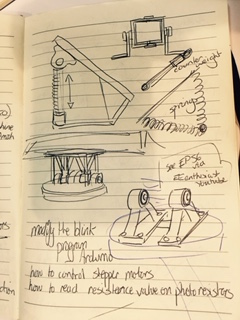 counter
weight
spring
see EPS6
via
Youtube
modify the blink
program
Arduino
how to control stepper motors
how to read resistance value on photoresistors